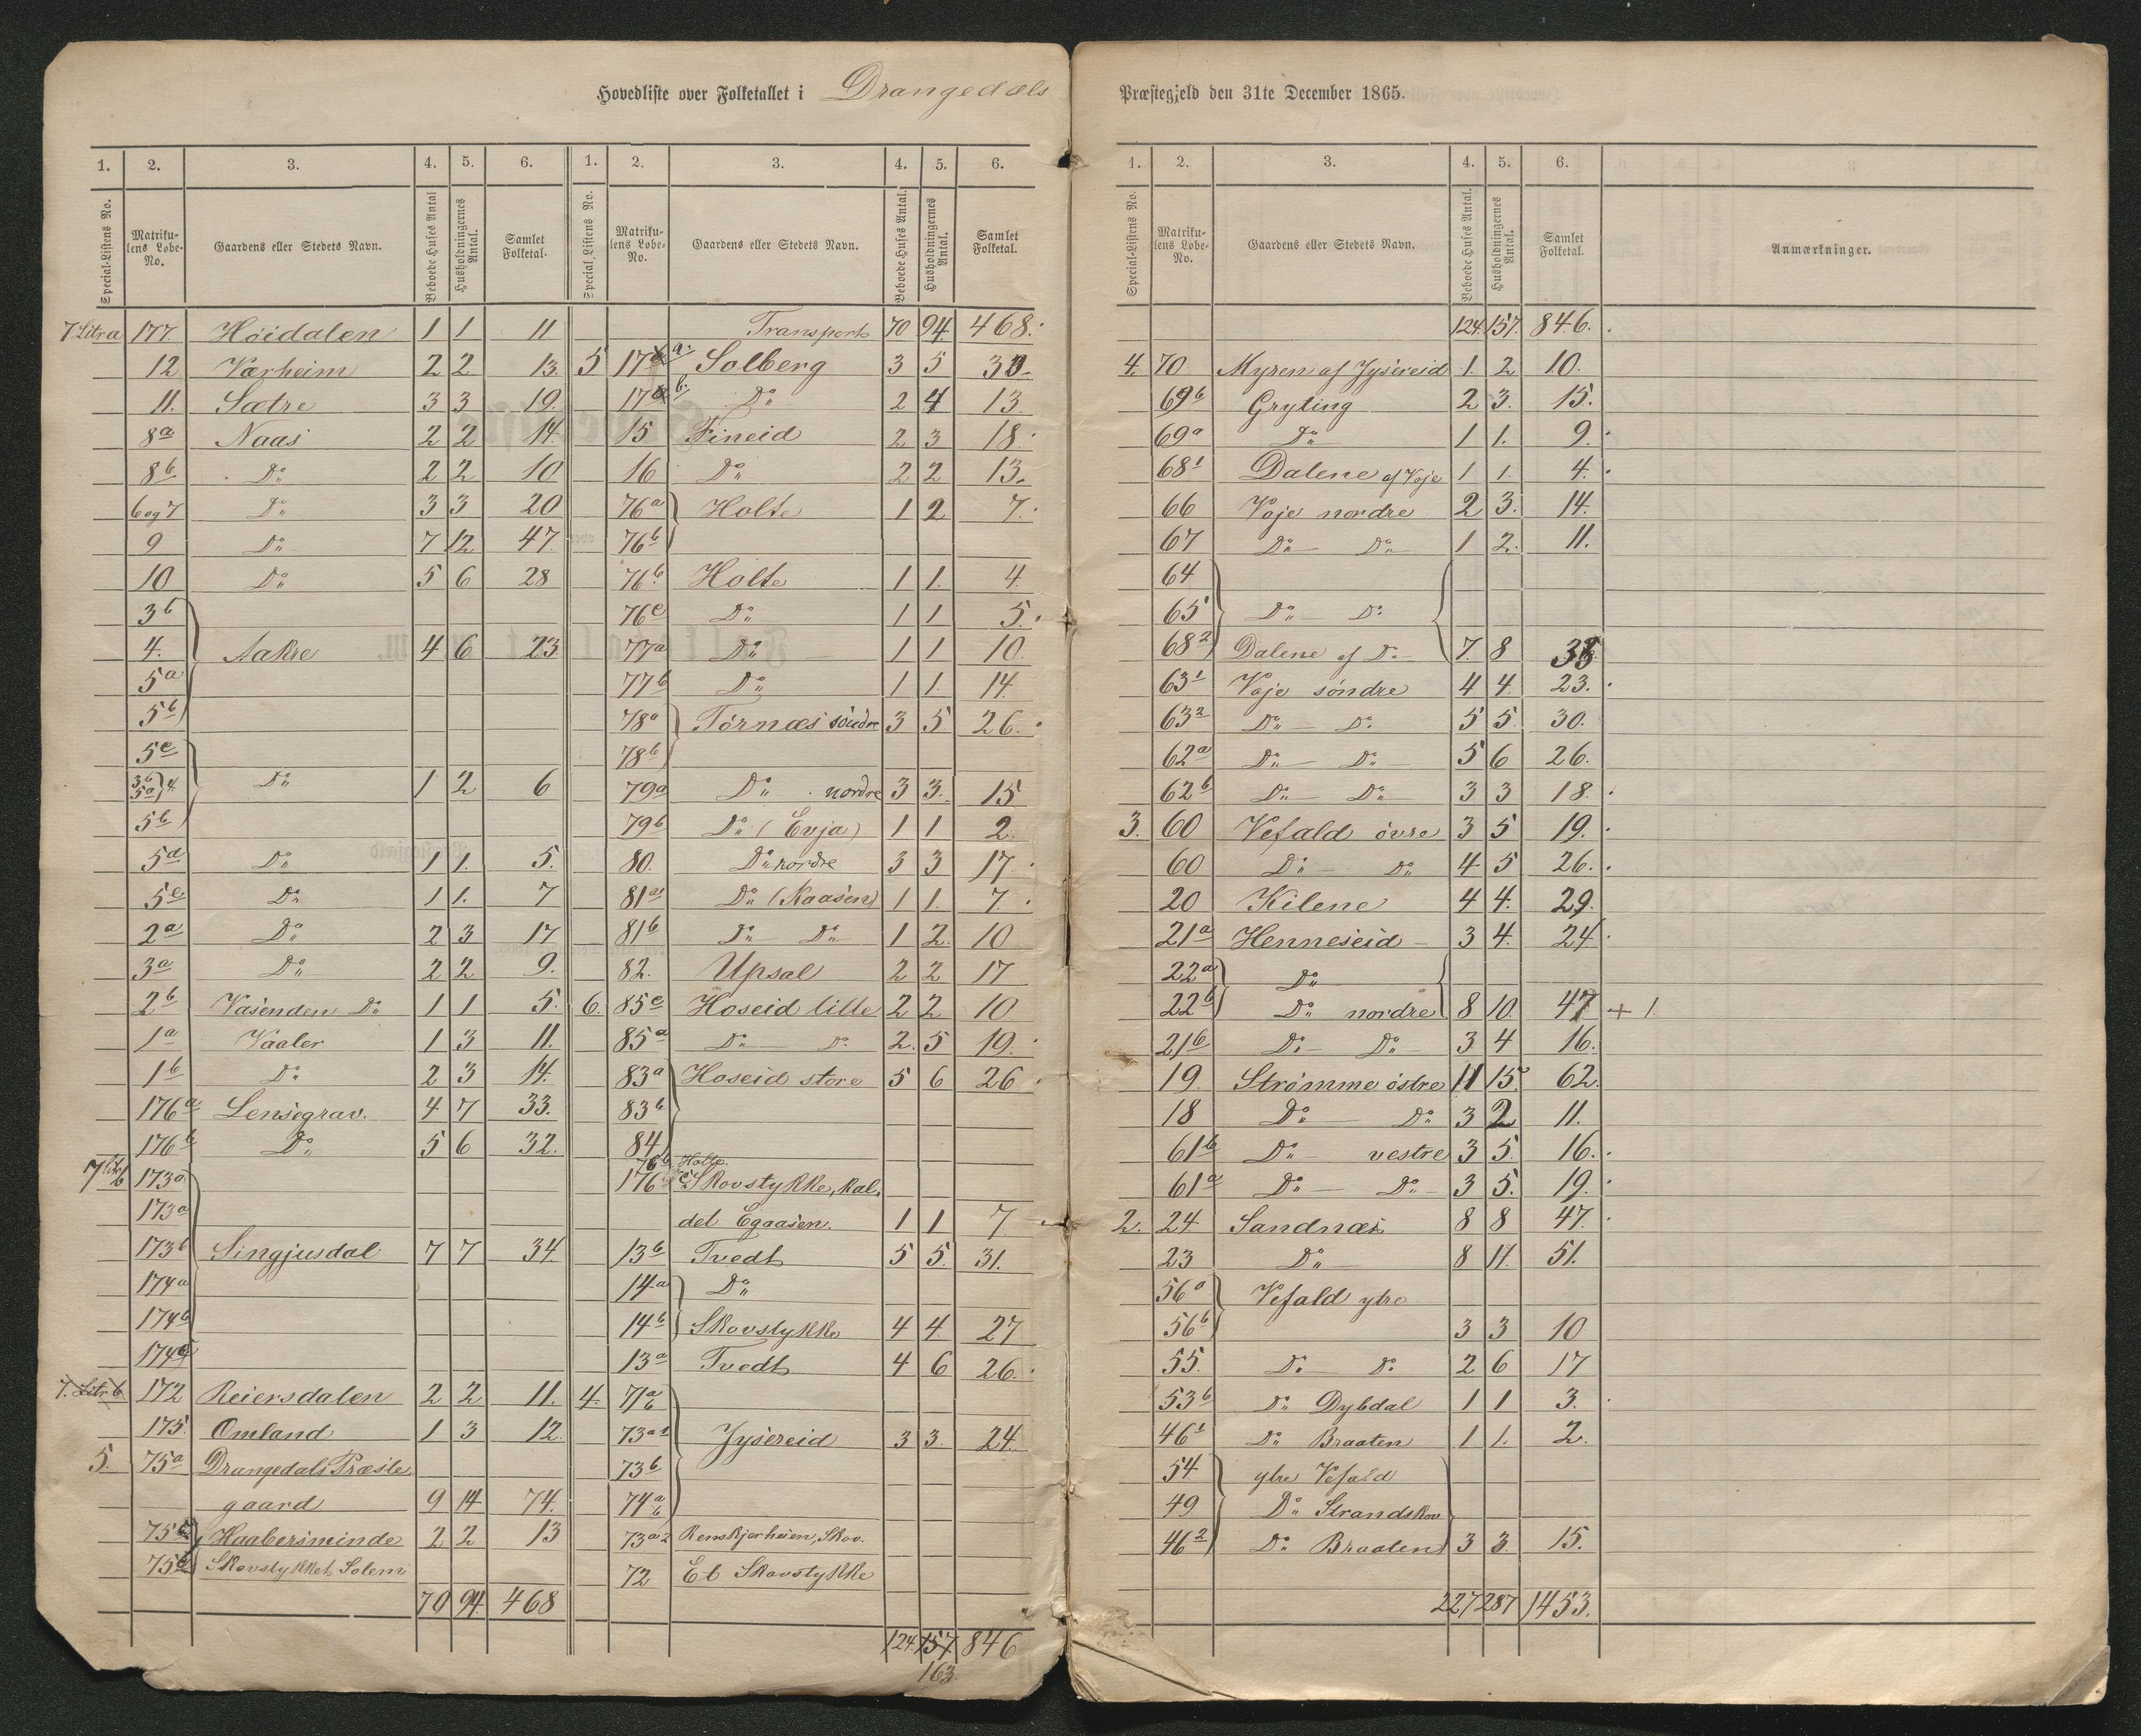 Hovedliste over Folketallet i Drangedals Præstegjeld den 31te December 1865.
1. 2. 3. 4. 5. 6. 1. 2. 3. 4. 5. 6.
Special-Listens No. Matrikulens Løbe-No. Gaardens eller Stedets Navn. Beboede Huses Antal Husholdningernes Antal. Samlet Folketal. Special Listens No. Matrikulens Løbe-No. Gaardens eller Stedets Navn. Beboede Huses Antal. Husholdningernes Antal. Samlet Folketal.
7 Litra 177. Høidalen 1 1 11
12 Værheim 2 2 13.
11. Sætre 3 3 19.
8a Naas 2 2 14.
8b Do 2 2 10
6 og 7 Do 3 3 20
9 Do 7 12 47
10 Do 5 6 28
3b
4. Aakre 4 6 23
5a
5b
5c
3b 5a 4. Do 1 2 6
5b
5d Do 1 1. 5.
5e Do 1 1. 7
2a Do 2 3 17
3a Do 2 2 9.
2b Vasenden Do 1 1 5.
1a Vaaler 1 3 11.
1b Do 2 3 14.
176a Lensegrav. 4 7 33.
176b Do 5 6 32.
7 Litr b 173a
173a
173b Singjusdal 7 7 34.
174a
174b
174c
7. Litr b 172 Reiersdalen 2 2 11.
175. Omland 1 3 12.
5. 75a Drangedals Præste
gaard 9 14 74.
75b Haabersminde 2 2 13
75c Skovstykket, Solem
70 94 468
Transport 70 94. 468.
5 17a Solberg 3 5 30.
17b Do 2 4 13.
15 Fineid 2 3 18
16 Do 2 2 13.
76a Holte 1 2 7.
76b
76b Holte 1 1. 4.
76c Do 1 1 5.
77a Do 1 1 10.
77b Do 1 1. 14.
78a Törnæs söndre 3 5 26.
78b
79a Do nordre 3 3. 15
79b Do (Evja) 1 1 2.
80. Do nordre 3 3 17.
81a Do (Naasen) 1 1. 7.
81b Do Do 1 2. 10
82. Upsal 2 2 17
6. 85c Hoseid lille 2 2 10
85a Do Do 2. 5 19.
83a Hoseid store 5 6 26
83b
84
76b Holte.
176c Skovstykke, kal-
det Egaasen. 1 1 7
13b Tvedt 5 5. 31.
14a Do
14b Skovstykke 4 4. 27
13a Tvedt 4 6 26.
4. 71a b
73a1 Jysereid 3 3. 24.
73b
74a b
73a2 Renskjørheien, Skov.
72 Et Skovstykke
124. 157 846
163.
1. 2. 3. 4. 5. 6.
Special-Listens No. Matrikulens Løbe-No. Gaardens eller Stedets Navn. Beboede Huses Antal. Husholdningernes Antal. Samlet Folketal. Anmærkninger.
124. 157. 846.
4. 70 Myren af Jysereid 1. 2 10.
69b Gryting 2 3. 15.
69a Do 1 1. 9.
68¹ Dalene af Voje 1 1. 4.
66 Voje nordre 2 3. 14.
67 Do Do 1 2. 11.
64
65 Do Do
68² Dalene af Do 7. 8
63¹ Voje söndre 4 4. 23.
63² Do Do 5 5. 30.
62a Do Do 5 6 26.
62b Do Do 3 3 18.
3. 60 Vefald övre 3 5 19.
60 Do Do 4 5 26.
20 Kilene 4 4. 29.
21a Henneseid 3 4. 24.
22a Do
22b Do nordre 8 10. 47 + 1.
21b Do Do 3 4 16.
19. Strömme östre 11 15. 62.
18 Do Do 3 2 11.
61b Do vestre 3 5. 16.
61a Do Do 3 5. 19.
2. 24 Sandnæs 8 8 47.
23 Do 8 11. 51.
56a Vefald ytre
56b 3 3 10
55. Do Do 2 6 17
53b Do Dybdal 1 1 3.
46¹ Do Braaten 1 1. 2.
54 ytre Vefald
49 Do Strandskov
46² Do Braaten 3 3. 15.
227 287 1453.